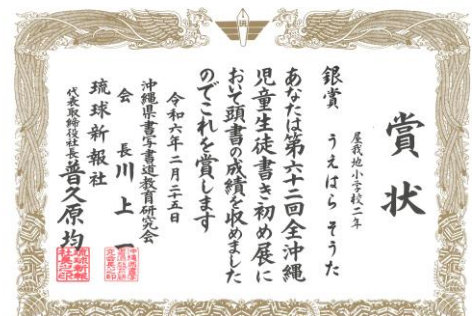 賞状
屋我地小学校二年
銀賞 うえはら そうた
あなたは第六十二回全沖縄
児童生徒書き初め展に
おいて頭書の成績を収めました
のでこれを賞します
令和六年二月二十五日
沖縄県書写書道教育研究会
会長 川上一
琉球新報社
代表取締役社長 普久原均